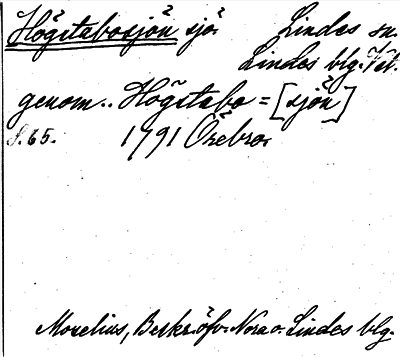 Högstabosjön sjö. Lindes sn.
Lindes blg. Vstm.
genom.. Högstabo = [sjön]
S. 65. 1791 Örebro.
Morelius, Beskr. öfv. Nora o. Lindes blg.